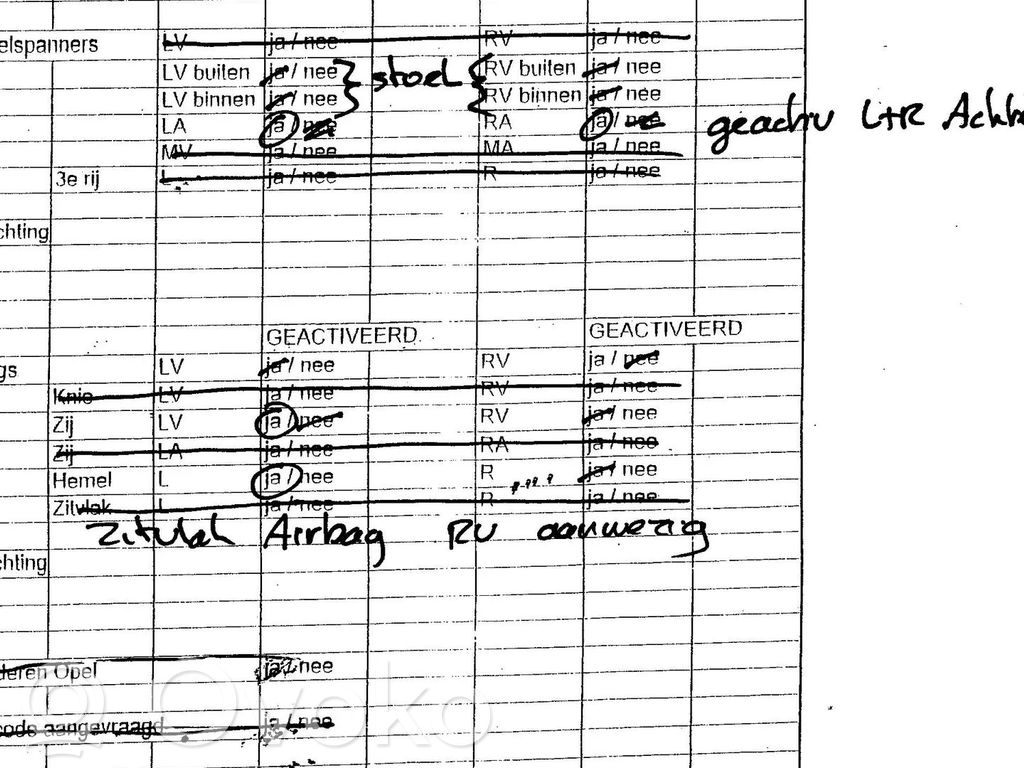 elspanners LV ja / nee RV ja / nee
LV buiten ja / nee stoel RV buiten ja / nee
LV binnen ja / nee RV binnen ja / nee
LA ja / nee RA ja / nee L+R
MV ja / nee MA ja / nee
3e rij L ja / nee R ja / nee
chting
GEACTIVEERD GEACTIVEERD
gs LV ja / nee RV ja / nee
Knie LV ja / nee RV ja / nee
Zij LV ja / nee RV ja / nee
Zij LA ja / nee RA ja / nee
Hemel L ja / nee R ja / nee
Zitvlak L ja / nee R ja / nee
Zitvlak Airbag RV aanwezig
chting
deren Opel ja / nee
code aangevraagd ja / nee
Ovoko